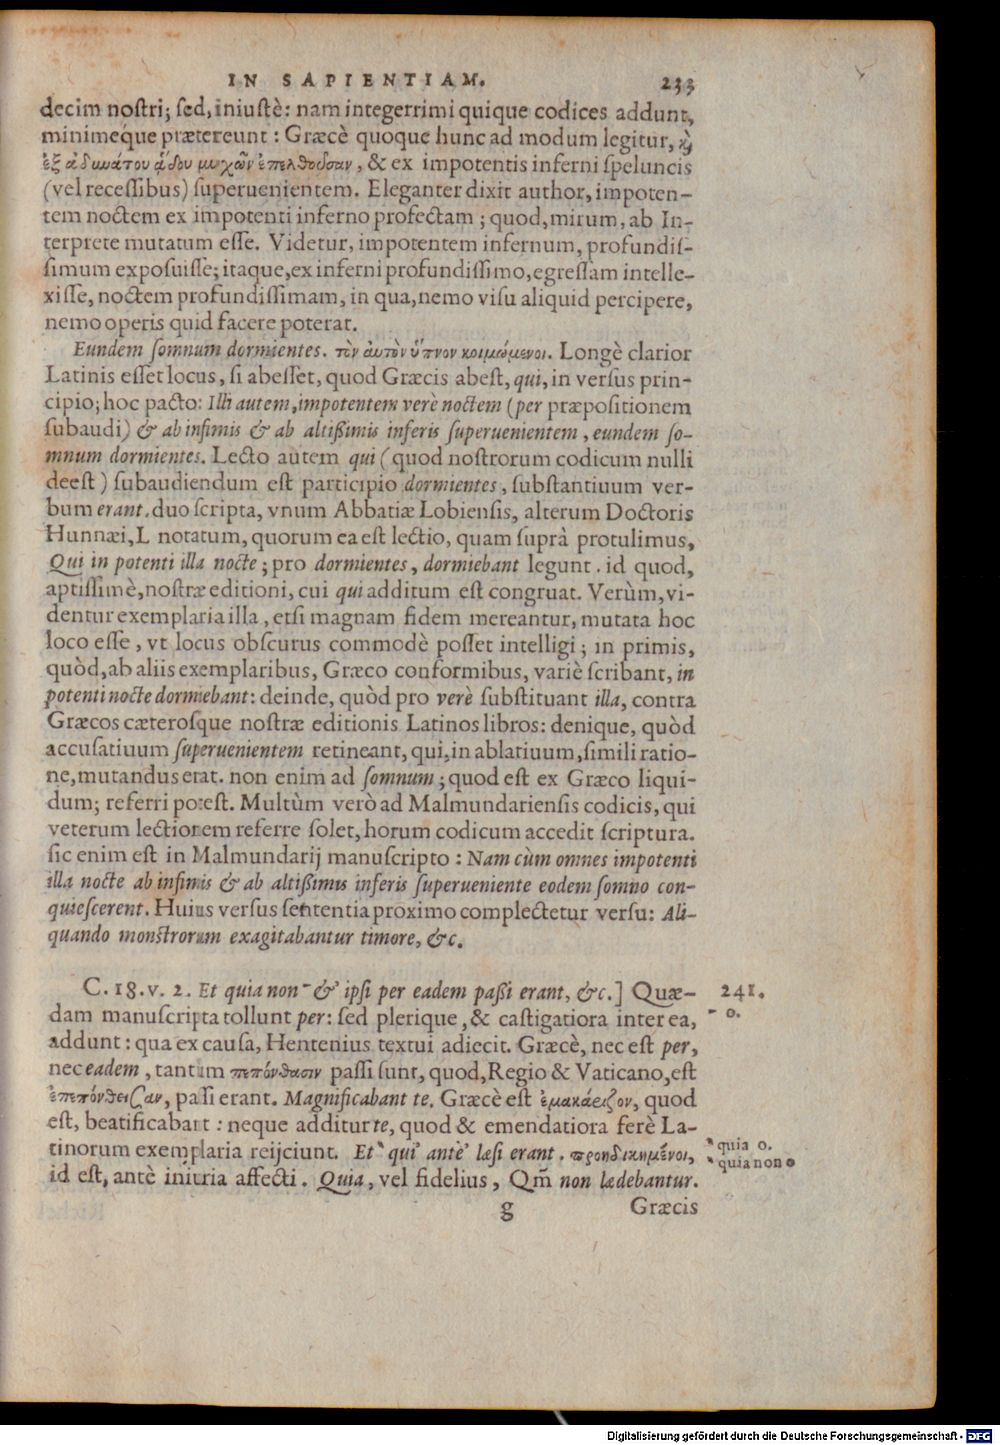 IN SAPIENTIAM. 233
decim nostri; sed, iniustè: nam integerrimi quique codices addunt,
minimeque prætereunt: Græcè quoque hunc ad modum legitur, κὶ
ἐξ ἀδυνάτου ᾅδου μυχῶν ἐπελθοῦσαν, & ex impotentis inferni speluncis
(vel recessibus) superuenientem. Eleganter dixit author, impoten-
tem noctem ex impotenti inferno profectam; quod, mirum, ab In-
terprete mutatum esse. Videtur, impotentem infernum, profundis-
simum exposuisse; itaque, ex inferni profundissimo, egressam intelle-
xisse, noctem profundissimam, in qua, nemo visu aliquid percipere,
nemo operis quid facere poterat.
Eundem somnum dormientes. τὸν αὐτὸν ὕπνον κοιμώμενοι. Longè clarior
Latinis esset locus, si abesset, quod Græcis abest, qui, in versus prin-
cipio; hoc pacto: Illi autem, impotentem verè noctem (per præpositionem
subaudi) & ab infimis & ab altißimis inferis superuenientem, eundem so-
mnum dormientes. Lecto autem qui (quod nostrorum codicum nulli
deest) subaudiendum est participio dormientes, substantiuum ver-
bum erant. duo scripta, vnum Abbatiæ Lobiensis, alterum Doctoris
Hunnæi, L notatum, quorum ea est lectio, quam suprà protulimus,
Qui in potenti illa nocte; pro dormientes, dormiebant legunt. id quod,
aptissimè, nostræ editioni, cui qui additum est congruat. Verùm, vi-
dentur exemplaria illa, etsi magnam fidem mereantur, mutata hoc
loco esse, vt locus obscurus commodè posset intelligi; in primis,
quòd, ab aliis exemplaribus, Græco conformibus, variè scribant, in
potenti nocte dormiebant: deinde, quòd pro verè substituant illa, contra
Græcos cæterosque nostræ editionis Latinos libros: denique, quòd
accusatiuum superuenientem retineant, qui, in ablatiuum, simili ratio-
ne, mutandus erat. non enim ad somnum; quod est ex Græco liqui-
dum; referri potest. Multùm verò ad Malmundariensis codicis, qui
veterum lectionem referre solet, horum codicum accedit scriptura.
sic enim est in Malmundarij manuscripto: Nam cùm omnes impotenti
illa nocte ab infimis & ab altißimis inferis superueniente eodem somno con-
quiescerent. Huius versus sententia proximo complectetur versu: Ali-
quando monstrorum exagitabantur timore, &c.
C. 18. v. 2. Et quia non ⁻ & ipsi per eadem paßi erant, &c.] Quæ- 241.
dam manuscripta tollunt per: sed plerique, & castigatiora inter ea, ⁻ o.
addunt: qua ex causa, Hentenius textui adiecit. Græcè, nec est per,
nec eadem, tantùm πεπόνθασιν passi sunt, quod, Regio & Vaticano, est
ἐπεπόνθεισαν, passi erant. Magnificabant te. Græcè est ἐμακάριζον, quod
est, beatificabant: neque additur te, quod & emendatiora ferè La-
tinorum exemplaria reijciunt. Et qui antè læsi erant. προηδικημένοι, quia o.
id est, antè iniuria affecti. Quia, vel fidelius, Qm̃ non lædebantur. quia non o
g Græcis
Digitalisierung gefördert durch die Deutsche Forschungsgemeinschaft - DFG